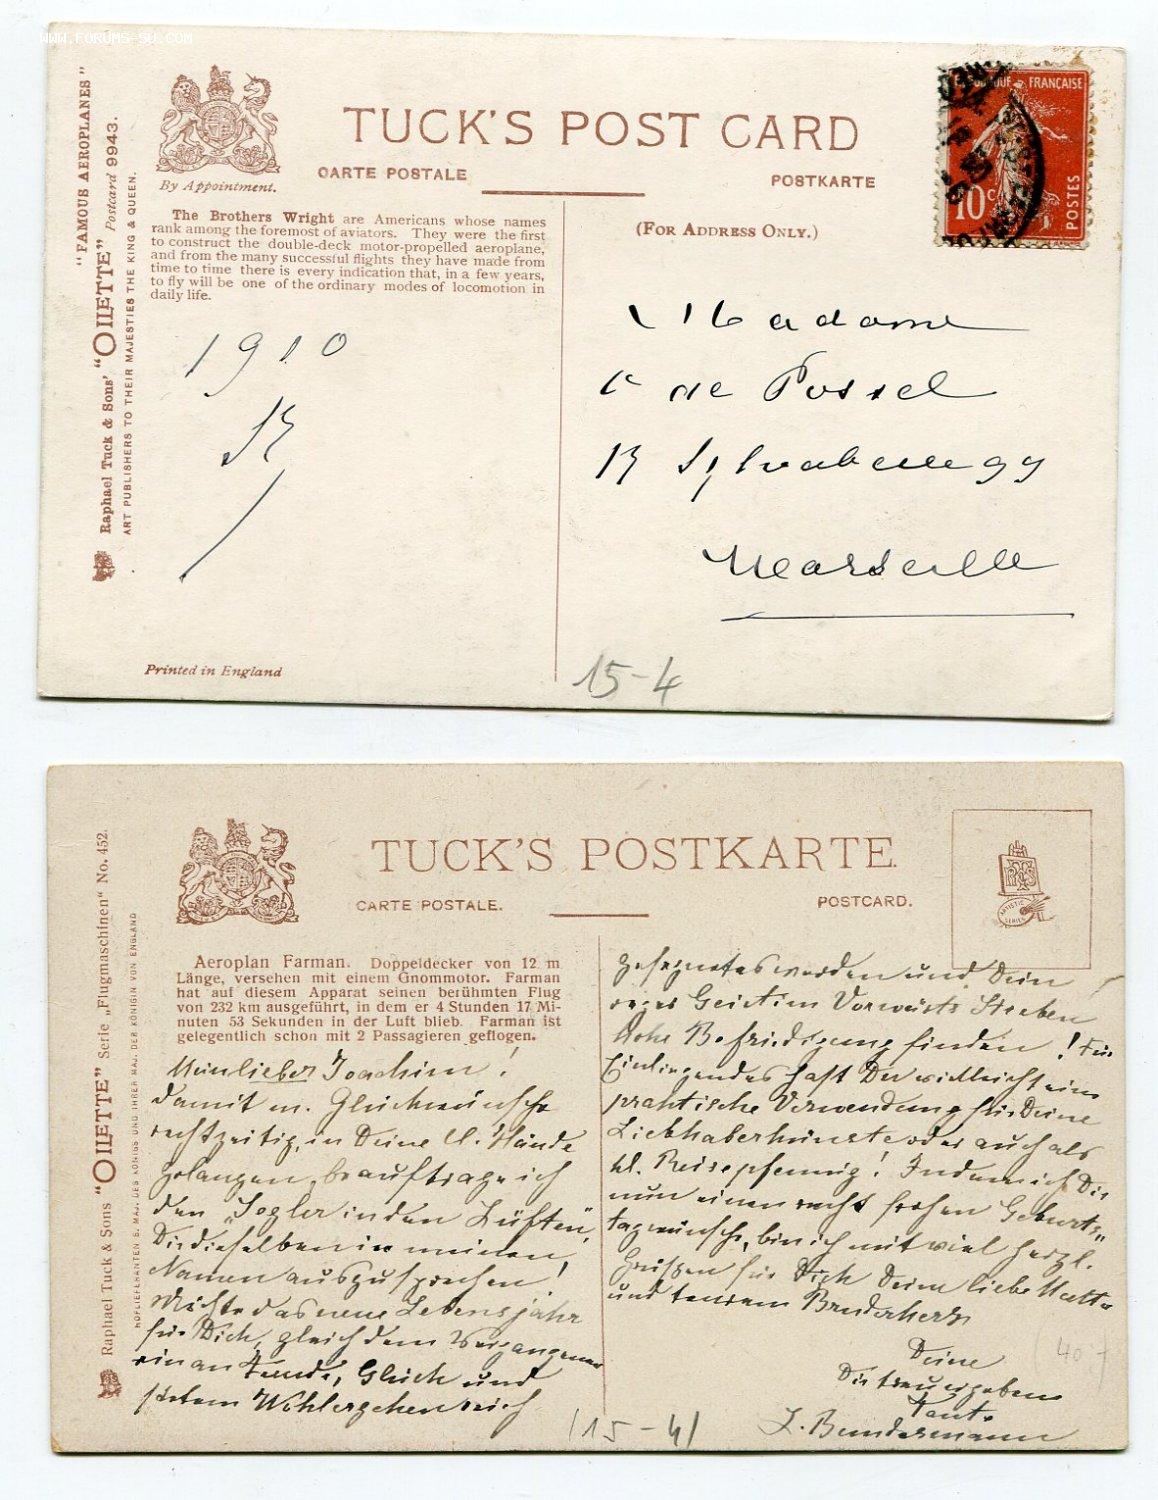 WWW.FORUMS-SU.COM
"FAMOUS AEROPLANES"
Raphael Tuck & Sons' "OILETTE" Postcard 9943.
ART PUBLISHERS TO THEIR MAJESTIES THE KING & QUEEN.
By Appointment.
TUCK'S POST CARD
CARTE POSTALE
POSTKARTE
RÉPUBLIQUE FRANÇAISE
10c
POSTES
The Brothers Wright are Americans whose names
rank among the foremost of aviators. They were the first
to construct the double-deck motor-propelled aeroplane,
and from the many successful flights they have made from
time to time there is every indication that, in a few years,
to fly will be one of the ordinary modes of locomotion in
daily life.
(FOR ADDRESS ONLY.)
1910
Madame
de Possel
Marseille
Printed in England
15-4
Raphael Tuck & Sons "OILETTE" Serie „Flugmaschinen“ No. 452.
HOFLIEFERANTEN S. MAJ. DES KÖNIGS UND IHRER MAJ. DER KÖNIGIN VON ENGLAND
TUCK'S POSTKARTE
CARTE POSTALE.
POSTCARD.
ARTISTIC
SERIES
Aeroplan Farman. Doppeldecker von 12 m
Länge, versehen mit einem Gnommotor. Farman
hat auf diesem Apparat seinen berühmten Flug
von 232 km ausgeführt, in dem er 4 Stunden 17 Mi-
nuten 53 Sekunden in der Luft blieb. Farman ist
gelegentlich schon mit 2 Passagieren geflogen.
Mein lieber Joachim!
Damit m. Glückwünsche
rechtzeitig in Deine l. Hände
gelangen, beauftrage ich
den „Segler in den Lüften“,
Dir dieselben in meinem
Namen auszusprechen!
Möchte das neue Lebensjahr
für Dich, gleich dem vergangenen
ein an Freude, Glück und
Wohlergehen reich
gesegnetes werden und Dein
reger Geist im Vorwärts Streben
hohe Befriedigung finden!
Einliegendes hast Du vielleicht eine
praktische Verwendung für Deine
Liebhaberkünste oder auch als
kl. Reisepfennig! Indem ich Dir
nun einen recht frohen Geburts-
tag wünsche, bin ich mit viel herzl.
Grüßen für Dich Deine liebe Mutter
und Bruderherz
Deine
Dir treu ergebene
Tante
L. Bundesmann
15-4
40